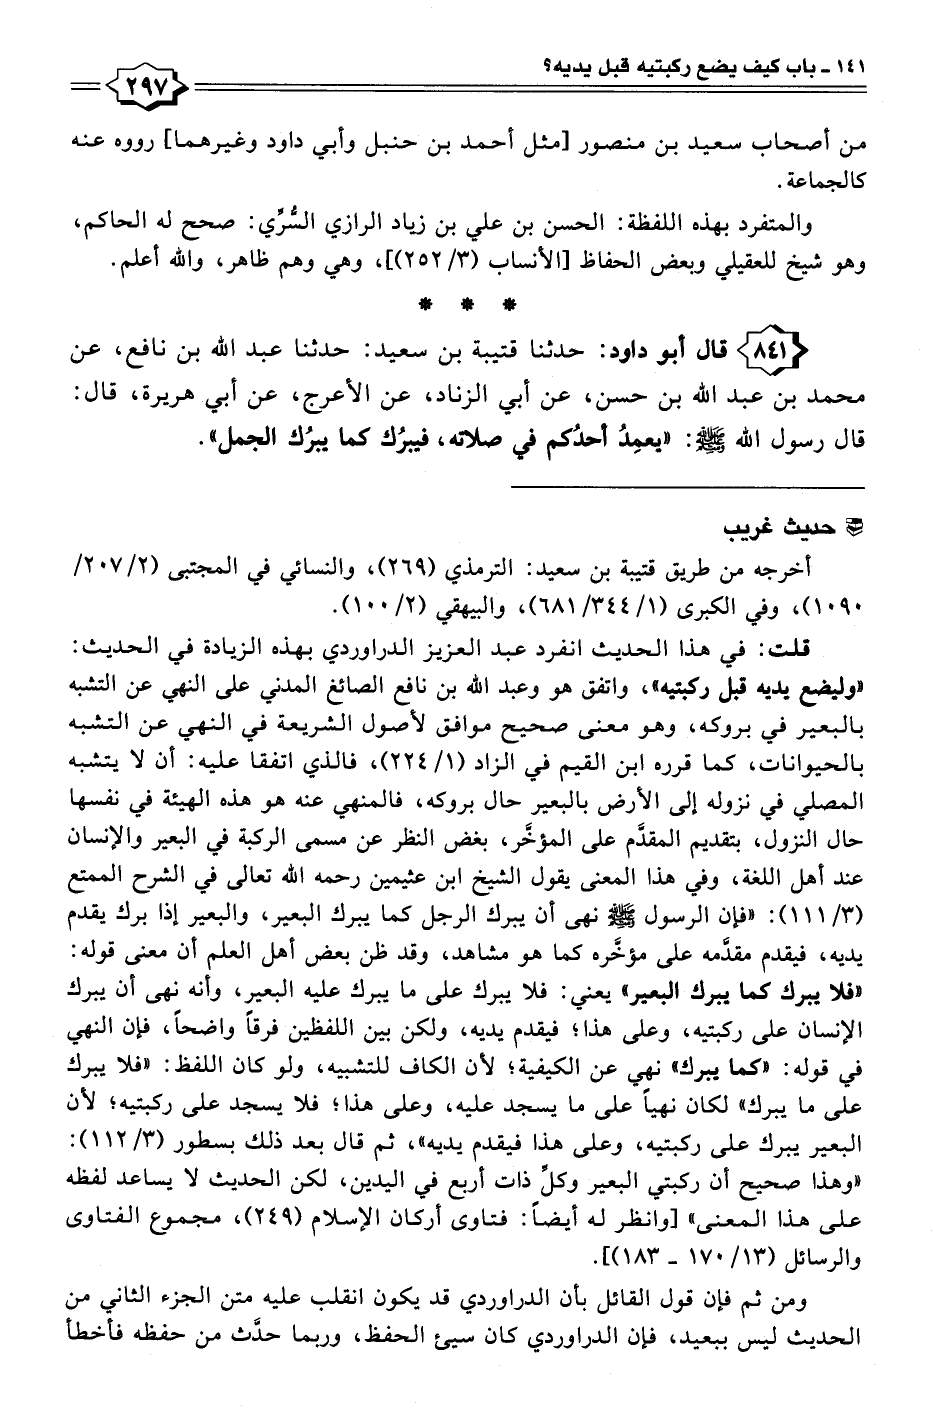 ١٤١ - باب كيف يضع ركبتيه قبل يديه؟
٢٩٧
من أصحاب سعيد بن منصور [مثل أحمد بن حنبل وأبي داود وغيرهما] رووه عنه
كالجماعة.
والمتفرد بهذه اللفظة: الحسن بن علي بن زياد الرازي السُّرِّي: صحح له الحاكم،
وهو شيخ للعقيلي وبعض الحفاظ [الأنساب (٣/ ٢٥٢)]، وهي وهم ظاهر، والله أعلم.
* * *
٨٤١ قال أبو داود: حدثنا قتيبة بن سعيد: حدثنا عبد الله بن نافع، عن
محمد بن عبد الله بن حسن، عن أبي الزناد، عن الأعرج، عن أبي هريرة، قال:
قال رسول الله ﷺ: «يعمِدُ أحدُكم في صلاته، فيبرُك كما يبرُك الجمل».
حديث غريب
أخرجه من طريق قتيبة بن سعيد: الترمذي (٢٦٩)، والنسائي في المجتبى (٢/ ٢٠٧/
١٠٩٠)، وفي الكبرى (١/ ٣٤٤/ ٦٨١)، والبيهقي (٢/ ١٠٠).
قلت: في هذا الحديث انفرد عبد العزيز الدراوردي بهذه الزيادة في الحديث:
«وليضع يديه قبل ركبتيه»، واتفق هو وعبد الله بن نافع الصائغ المدني على النهي عن التشبه
بالبعير في بروكه، وهو معنى صحيح موافق لأصول الشريعة في النهي عن التشبه
بالحيوانات، كما قرره ابن القيم في الزاد (١/ ٢٢٤)، فالذي اتفقا عليه: أن لا يتشبه
المصلي في نزوله إلى الأرض بالبعير حال بروكه، فالمنهي عنه هو هذه الهيئة في نفسها
حال النزول، بتقديم المقدَّم على المؤخَّر، بغض النظر عن مسمى الركبة في البعير والإنسان
عند أهل اللغة، وفي هذا المعنى يقول الشيخ ابن عثيمين رحمه الله تعالى في الشرح الممتع
(٣/ ١١١): «فإن الرسول ﷺ نهى أن يبرك الرجل كما يبرك البعير، والبعير إذا برك يقدم
يديه، فيقدم مقدَّمه على مؤخَّره كما هو مشاهد، وقد ظن بعض أهل العلم أن معنى قوله:
«فلا يبرك كما يبرك البعير» يعني: فلا يبرك على ما يبرك عليه البعير، وأنه نهى أن يبرك
الإنسان على ركبتيه، وعلى هذا؛ فيقدم يديه، ولكن بين اللفظين فرقاً واضحاً، فإن النهي
في قوله: «كما يبرك» نهي عن الكيفية؛ لأن الكاف للتشبيه، ولو كان اللفظ: «فلا يبرك
على ما يبرك» لكان نهياً على ما يسجد عليه، وعلى هذا؛ فلا يسجد على ركبتيه؛ لأن
البعير يبرك على ركبتيه، وعلى هذا فيقدم يديه»، ثم قال بعد ذلك بسطور (٣/ ١١٢):
«وهذا صحيح أن ركبتي البعير وكلِّ ذات أربع في اليدين، لكن الحديث لا يساعد لفظه
على هذا المعنى» [وانظر له أيضاً: فتاوى أركان الإسلام (٢٤٩)، مجموع الفتاوى
والرسائل (١٣/ ١٧٠ - ١٨٣)].
ومن ثم فإن قول القائل بأن الدراوردي قد يكون انقلب عليه متن الجزء الثاني من
الحديث ليس ببعيد، فإن الدراوردي كان سيئ الحفظ، وربما حدَّث من حفظه فأخطأ